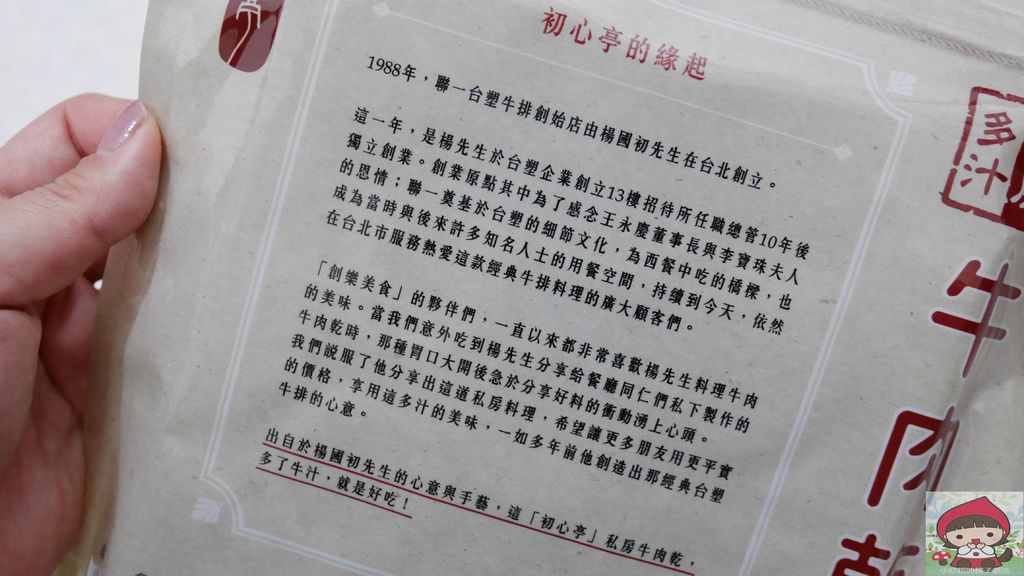 亭
初心亭的緣起
1988年，聯一台塑牛排創始店由楊國初先生在台北創立。
這一年，是楊先生於台塑企業創立13樓招待所任職總管10年後
獨立創業。創業原點其中為了感念王永慶董事長與李寶珠夫人
的恩情；聯一奠基於台塑的細節文化，為西餐中吃的橋樑，也
成為當時與後來許多知名人士的用餐空間，持續到今天，依然
在台北市服務熱愛這款經典牛排料理的廣大顧客們。
「創樂美食」的夥伴們，一直以來都非常喜歡楊先生料理牛肉
的美味。當我們意外吃到楊先生分享給餐廳同仁們私下製作的
牛肉乾時，那種胃口大開後急於分享好料的衝動湧上心頭。
我們說服了他分享出這道私房料理，希望讓更多朋友用更平實
的價格，享用這多汁的美味，一如多年前他創造出那經典台塑
牛排的心意。
出自於楊國初先生的心意與手藝，這「初心亭」私房牛肉乾，
多了牛汁，就是好吃！
多汁
牛肉乾